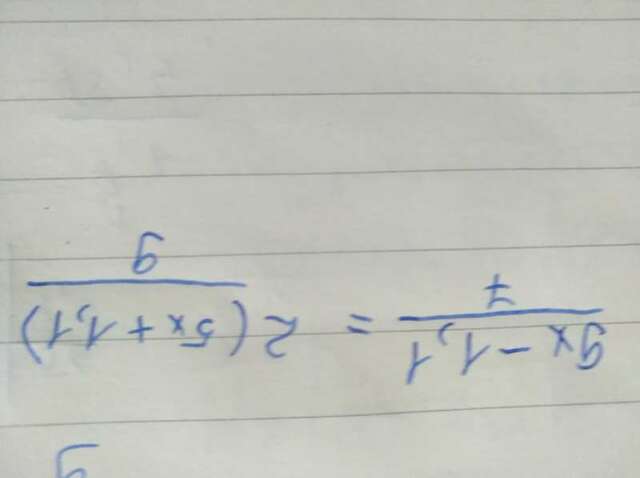 9x - 1,1 / 7 = 2(5x + 1,1) / 9